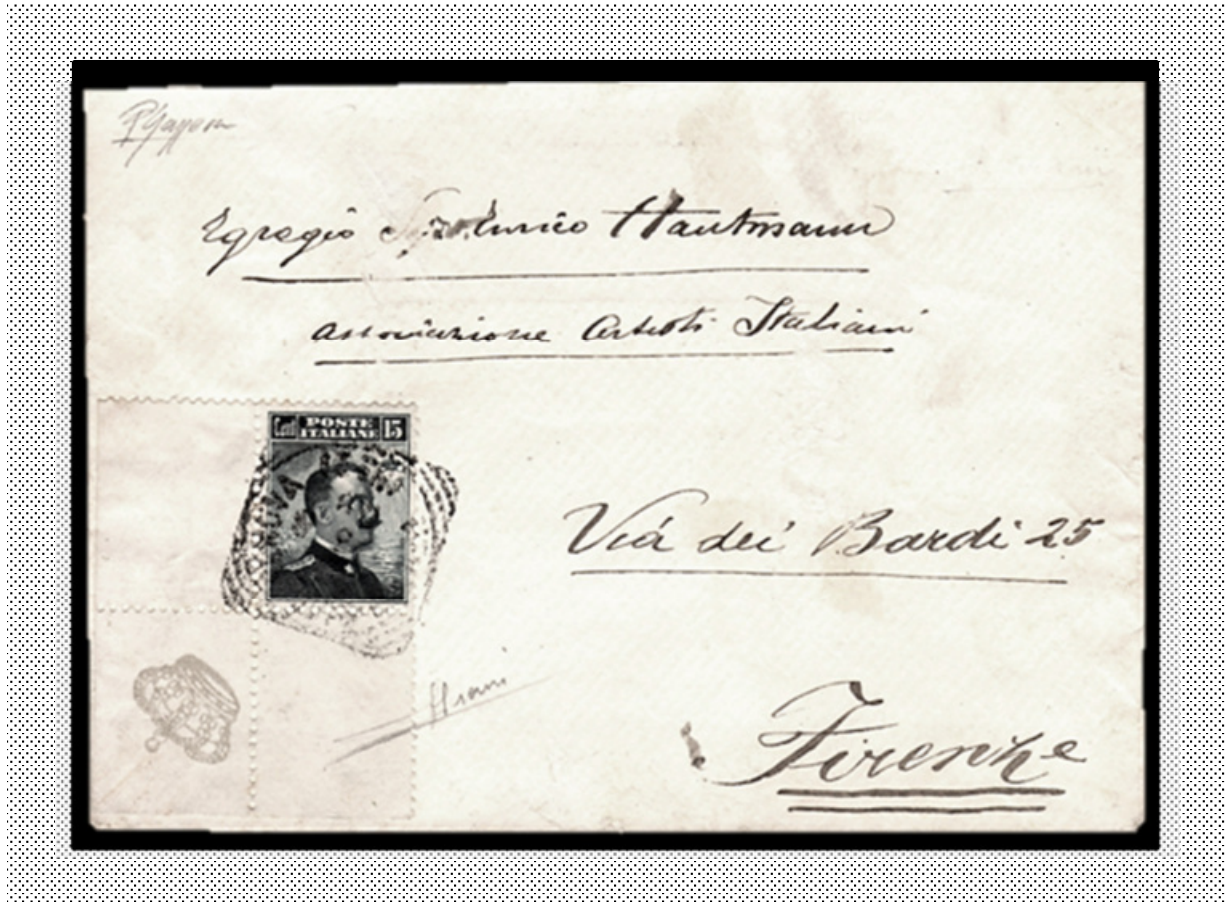 Egregio Sig. Enrico Hautmann
Associazione Artisti Italiani
POSTE
ITALIANE 15
Via dei Bardi 25
Firenze